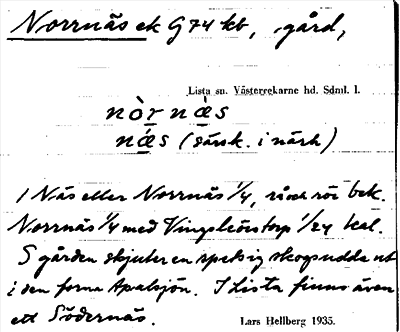 Norrnäs ek G 74 kb, gård,
Lista sn. Västerrekarne hd. Sdml. l.
nòrnä̀s
nä́s (särsk. i närh)
1 Näs eller Norrnäs 1/4, bek.
Norrnäs 1/4 med Vingsleörstorp 1/24 kal.
S gården skjuter en spetsig skogsudde ut
i den forna Apalsjön. I Lista finns även
ett Södernäs.
Lars Hellberg 1935.